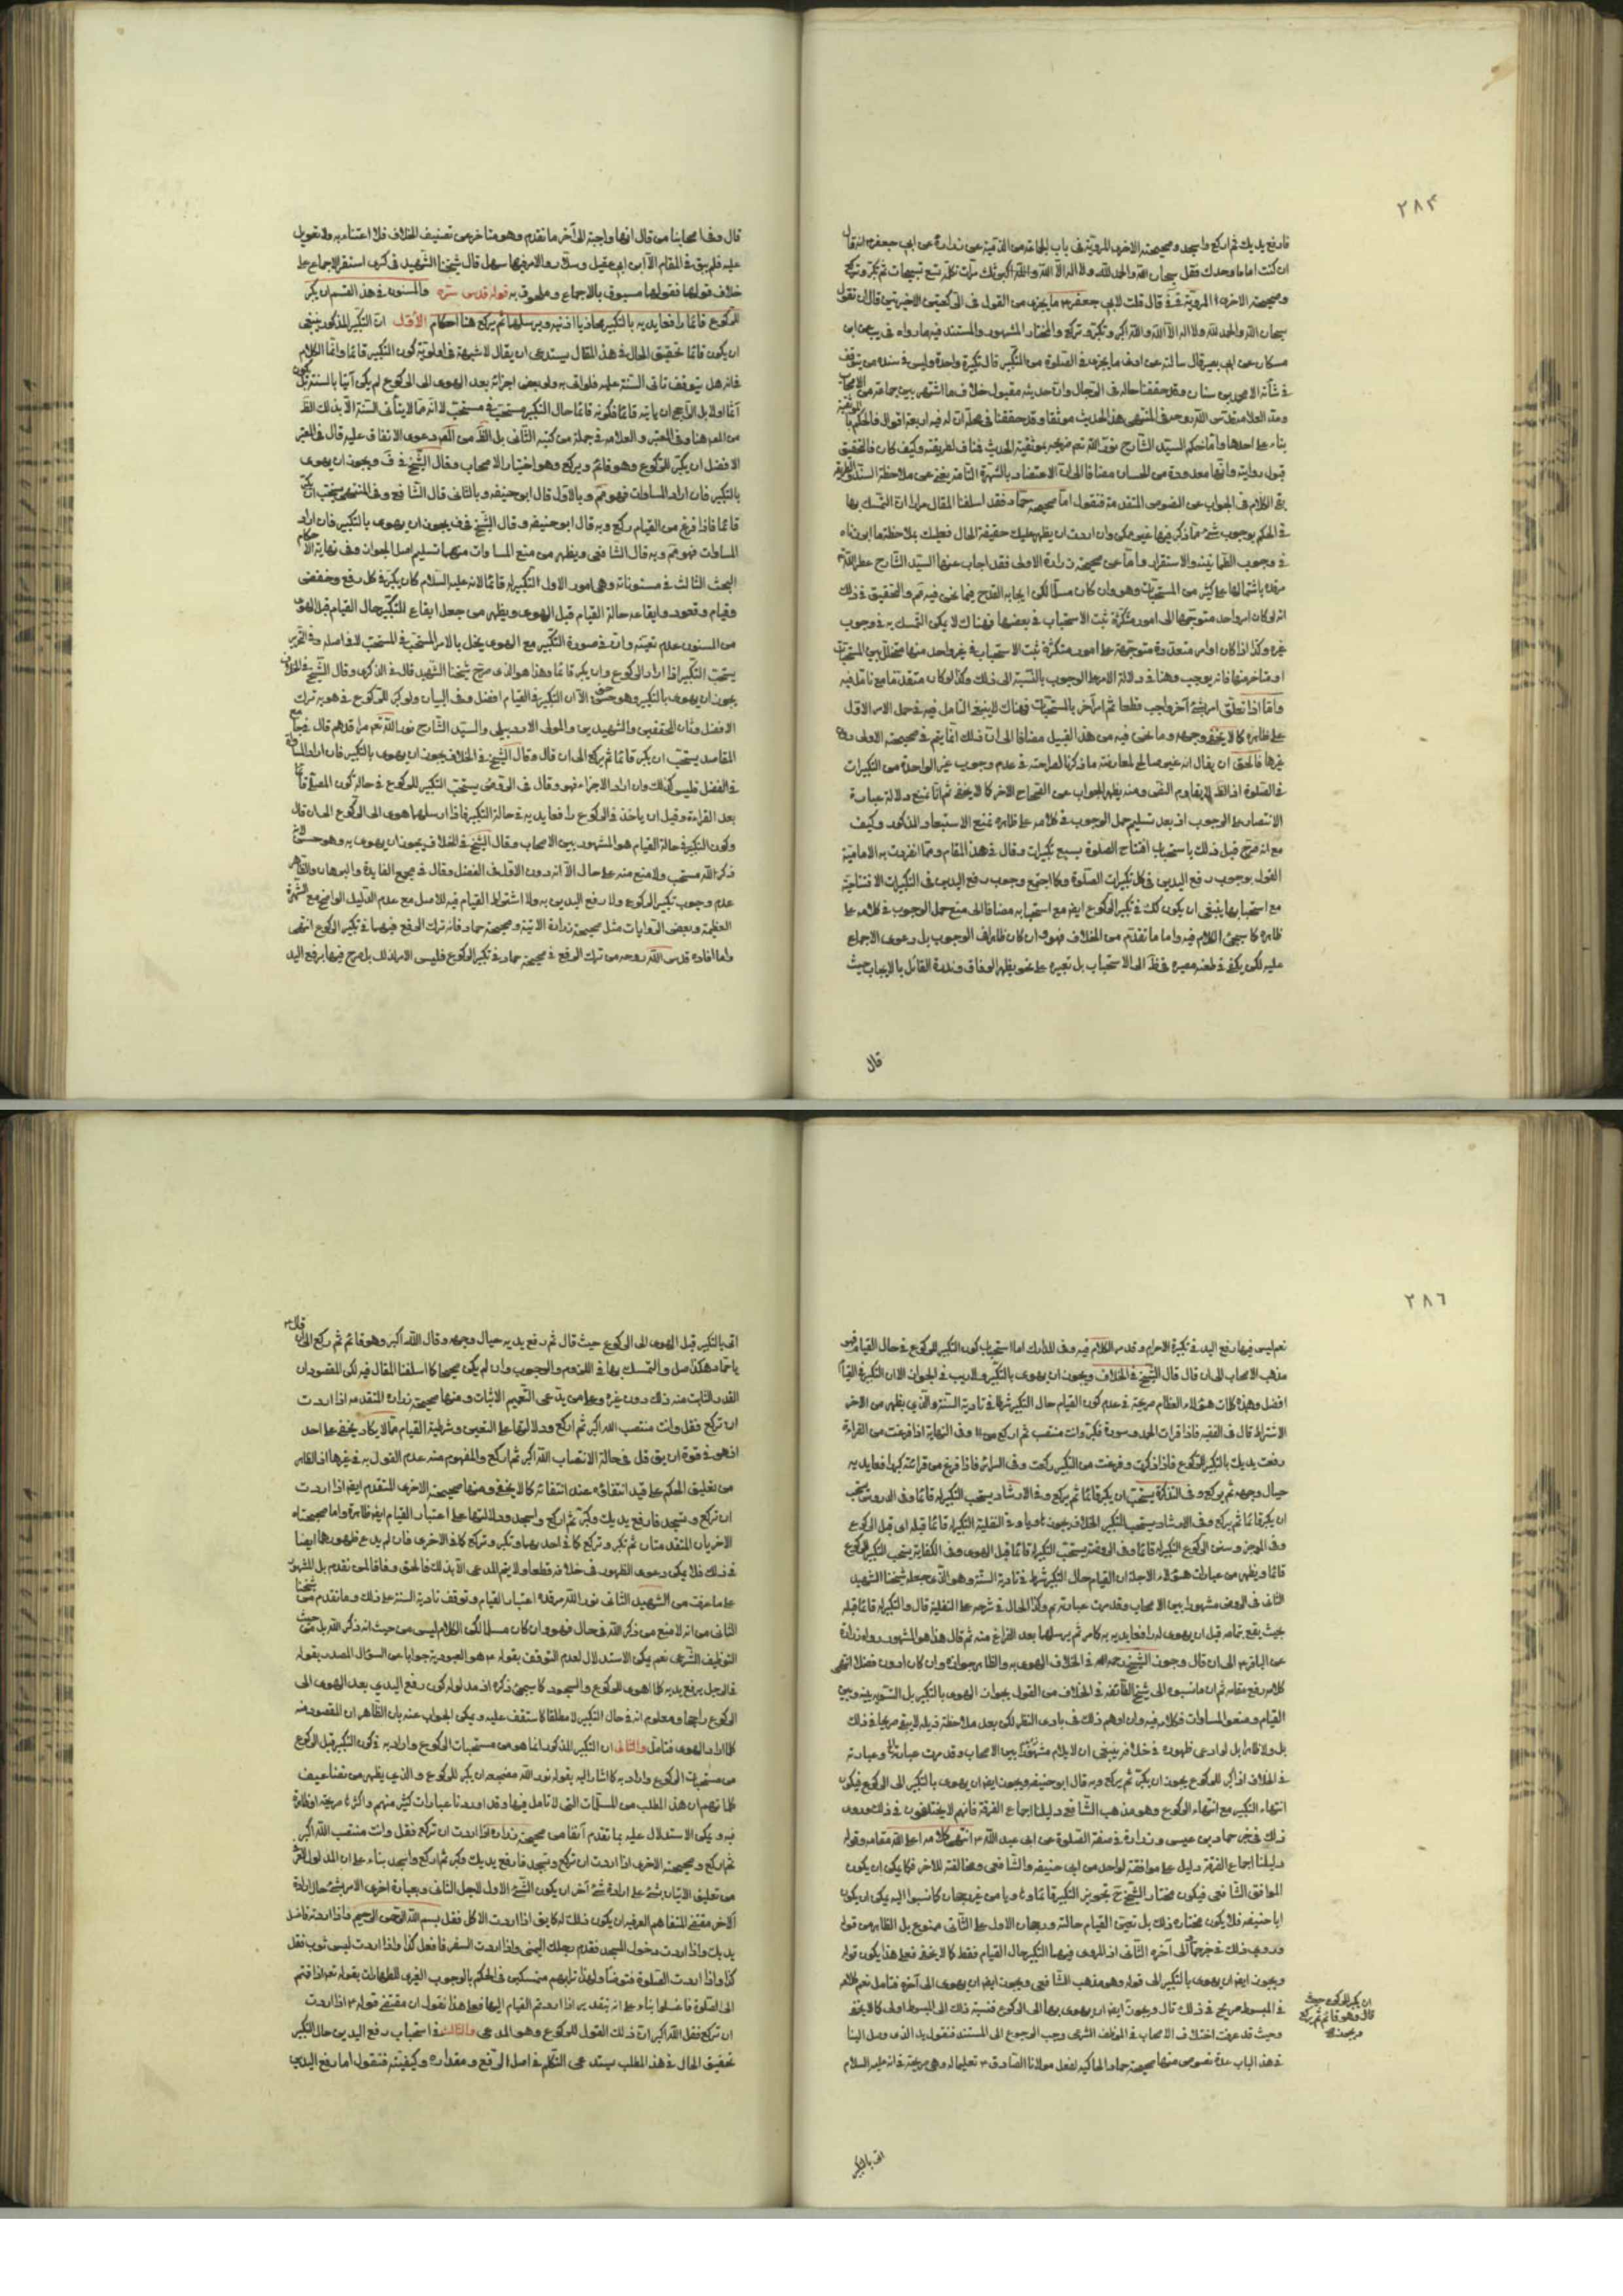 ٢٨٣
فارفع يديك ثم اركع واسجد وصحيحته الاخرى المروية في باب الجماعة من الفقيه عن زرارة عن ابي جعفر انه قال
ان كنت اماما او وحدك فقل سبحان الله والحمد لله ولا اله الا الله والله اكبر ثلث مرات تكمله تسع تسبيحات ثم تكبر وتركع
وصحيحته الاخرى المروية قال قلت لابي جعفر ما يجزى من القول في الركعتين الاخيرتين قال ان تقول
سبحان الله والحمد لله ولا اله الا الله والله اكبر وتكبر وتركع والمختار المشهور والمستند فيه ما رواه في يب عن ابن
مسكان عن ابي بصير قال سالته عن ادنى ما يجزى في الصلوة من التكبير قال تكبيرة واحدة وليس في سنده من يتوقف
في شأنه الا محمد بن سنان وقد حققنا حاله في الرجال وان حديثه مقبول خلافا لما اشتهر بين جماعة من الاصحاب
بناء على احدها واما حكم السيد الشارح نور الله ضريحه بموثقية الحديث مناف لطريقته وكيف كان فالتحقيق
قبول روايته وانها معدودة من الحسان مضافا الى ان الاعتضاد بالشهرة التامة يغنى عن ملاحظة السند
بقي الكلام في الجواب عن النصوص المتقدمة فنقول اما صحيحة حماد فقد اسلفنا المقال مرارا ان التمسك بها
في الحكم بوجوب شئ مما ذكر فيها غير ممكن وان اردت ان يظهر عليك حقيقة الحال فعليك بملاحظة ما ابرزناه
في وجوب الطمانينة والاستقرار واما عن صحيحة زرارة الاولى فقد اجاب عنها السيد الشارح عطر الله
مرقده باشتمالها على كثير من المستحبات وهو وان كان مسلما لكن ايجابه القدح فيما نحن فيه والتحقيق في ذلك
انه لو كان امر واحد متوجها الى امور متكثرة ثبت الاستحباب في بعضها فهناك لا يمكن التمسك به في وجوب
غيره وكذا اذا كان اوامر متعددة متوجهة على امور متكثرة ثبت الاستحباب في غير واحد منها متخلل بين المستحبات
او متاخر عنها فانه يوجب وهنا في دلالة الامر على الوجوب بالنسبة الى ذلك وكذا لو كان متقدما مع تامل فيه
واما اذا تعلق امر بشئ آخر واجب قطعا ثم امر آخر بالمستحبات فهناك لا ينبغي التامل فيه في حمل الامر الاول
على ظاهره كما لا يخفى وجهه وما نحن فيه من هذا القبيل مضافا الى ان ذلك انما يتم في صحيحته الاولى دون
غيرها فالحق ان يقال انه غير صالح لمعارضة ما ذكرنا لصراحته في عدم وجوب غير الواحدة من التكبيرات
في الصلوة اذ الظ لا يقاوم النص ومنه يظهر الجواب عن الصحاح الاخر كما لا يخفى ثم انا نمنع دلالة عبارة
الانتصار على الوجوب اذ بعد تسليم حمل الوجوب في كلامه على ظاهره نمنع الاستبعاد المذكور وكيف
مع انه صرح قبل ذلك باستحباب افتتاح الصلوة بسبع تكبيرات وقال في هذا المقام ومما انفردت به الامامية
القول بوجوب رفع اليدين في كل تكبيرات الصلوة وكما اجتمع وجوب رفع اليدين في التكبيرات الافتتاحية
مع استحبابها ينبغي ان يكون كك في تكبير الركوع ايضا مع استحبابه مضافا الى منع حمل الوجوب في كلامه على
ظاهره كما سيجئ الكلام فيه واما ما تقدم من الخلاف فهو وان كان ظاهرا في الوجوب بل دعوى الاجماع
عليه لكن يكفى في طعنه مصيره الى الاستحباب بل تعبيره على نحو يظهر الوفاق وندرة القائل بالايجاب حيث
قال
قال وفي اصحابنا من قال انها واجبة الى آخر ما تقدم وهو متاخر عن تصنيف الخلاف فلا اعتناء به ولا تعويل
عليه فلم يبق في المقام الا ابن ابي عقيل وسلار والامر فيهما سهل قال شيخنا الشهيد في كرى استقر الاجماع على
خلاف قولهما فقولهما مسبوق بالاجماع وملحوق به قوله قدس سره والمسنون في هذا القسم ان يكبر
للركوع قائما رافعا يديه بالتكبير محاذيا اذنيه ويرسلهما ثم يركع هنا احكام الاول ان التكبير المذكور ينبغي
ان يكون قائما تحقيق الحال في هذا المقال يستدعى ان يقال لا شبهة في اولوية كون التكبير قائما وانما الكلام
في انه هل يتوقف تأتى السنة عليه فلو اتى به ولو بعض اجزائه بعد الهوى الى الركوع لم يكن آتيا بالسنة
آثما او لا بل الراجح ان ياتيه قائما فكونه قائما حال التكبير مستحب في مستحب لا انه مما لا يتأتى السنة الا بذلك الظ
من المص هنا وفي المعتبر والعلامة في جملة من كتبه الثانى بل الظ من المص دعوى الاتفاق عليه قال في المعتبر
الافضل ان يكبر للركوع وهو قائم ويركع وهو اختيار الاصحاب وقال الشيخ في ف ويجوز ان يهوى
بالتكبير فان اراد المساوات فهو مم وبالاول قال ابو حنيفة وبالثانى قال الشافعى وفي المنتهى يستحب ان يكبر
قائما فاذا فرغ من القيام ركع وبه قال ابو حنيفة وقال الشيخ في ف يجوز ان يهوى بالتكبير فان اراد
المساوات فهو مم وبه قال الشافعى ويظهر من منع المساوات منهما تسليم اصل الجواز وفي نهاية الاحكام
البحث الثالث في مسنوناته وهى امور الاول التكبير له قائما لانه عليه السلام كان يكبر في كل رفع وخفض
وقيام وقعود وايقاعه حالة القيام قبل الهوى ويظهر من جعل ايقاع التكبير حال القيام قبل الهوى
من المسنون عدم تعينه وان في صورة التكبير مع الهوى يخل بالامر المستحب في المستحب لا في اصله وفي التحرير
يستحب التكبير اذا اراد الركوع وان يكبر قائما وهذا هو الذى صرح شيخنا الشهيد قال في الذكرى وقال الشيخ في الخلاف
يجوز ان يهوى بالتكبير وهو حسن الا ان التكبير في القيام افضل وفي البيان ولو كبر للركوع في هويه ترك
الافضل وثانى المحققين والشهيدين والمولى الاردبيلى والسيد الشارح نور الله تعالى مراقدهم قال في جامع
المقاصد يستحب ان يكبر قائما ثم يركع الى ان قال وقال الشيخ في الخلاف يجوز ان يهوى بالتكبير فان اراد المساواة
في الفضل فليس كذلك وان اراد الاجزاء فهو وقال في الروض يستحب التكبير للركوع في حالة كون المصلى قائما
بعد القراءة وقبل ان ياخذ في الركوع رافعا يديه في حالة التكبير فاذا ارسلهما هوى الى الركوع الى ان قال
وكون التكبير في حالة القيام هو المشهور بين الاصحاب وقال الشيخ في الخلاف يجوز ان يهوى به وهو حسن لانه
ذكر الله مستحب ولا منع منه على حال الا انه دون الاول في الفضل وقال في مجمع الفايدة والبرهان والظاهر
عدم وجوب تكبير الركوع ولا رفع اليدين به ولا اشتراط القيام فيه للاصل مع عدم الدليل الواضح مع الشهرة
العظيمة وبعض الروايات مثل صحيحة زرارة الاتية وصحيحة حماد فانه ترك الرفع فيهما في تكبير الركوع انتهى
واما افاده قدس الله روحه من ترك الرفع في صحيحة حماد في تكبير الركوع فليس الامر كذلك بل صرح فيها برفع اليد
٢٨٦
نعم ليس فيها رفع اليد في تكبيرة الاحرام وقد مر الكلام فيه وفي المدارك اما استحباب كون التكبير للركوع في حال القيام فهو
مذهب الاصحاب الى ان قال قال الشيخ في الخلاف ويجوز ان يهوى بالتكبير ولا ريب في الجواز الا ان التكبير في القيام
افضل وهذه كلمات هؤلاء العظام صريحة في عدم كون القيام حال التكبير شرطا في تادية السنة والذى يظهر من الاخر
الاشتراط قال في الفقيه فاذا قرات الحمد وسورة فكبر وانت منتصب ثم اركع وفي النهاية اذا فرغت من القراءة
رفعت يديك بالتكبير للركوع فاذا كبرت وفرغت من التكبير ركعت وفي السرائر فاذا فرغ من قراءته كبر رافعا يديه
حيال وجهه ثم يركع وفي التذكرة يستحب ان يكبر قائما ثم يركع وفي الارشاد يستحب التكبير له قائما وفي الدروس يستحب
ان يكبر قائما ثم يركع
وفي الموجز وسنن الركوع التكبير له قائما وفي الروضة يستحب التكبير له قائما قبل الهوى وفي الكفاية يستحب التكبير للركوع
قائما ويظهر من عبارات هؤلاء الاجلة ان القيام حال التكبير شرط في تادية السنة وهو الذى جعله شيخنا الشهيد
الثانى في الروض مشهورا بين الاصحاب وقد مرت عبارته وكذا الحال في شرحه على النفلية قال والتكبير له قائما قبله
بحيث يقع بتمامه قبل ان يهوى له رافعا يديه به كما مر ثم يرسلهما بعد الفراغ منه ثم قال هذا هو المشهور رواه زرارة
عن الباقر الى ان قال وجوز الشيخ رحمه الله في الخلاف الهوى به والظاهر جوازه وان كان ادون فضلا انتهى
كلامه رفع مقامه ثم ان ما نسبوه الى شيخ الطائفة في الخلاف من القول بجواز الهوى بالتكبير بل التسوية بينه وبين
القيام ومنعوا المساوات في كلامه فيه وان اوهم ذلك في بادى النظر لكن بعد ملاحظة ذيله لا يبقى صريحا في ذلك
بل ولا ظاهرا بل لو ادعى ظهوره في خلافه ينبغي ان لا يلام مشهورا بين الاصحاب وقد مرت عبارته وعبارته
في الخلاف اذا كبر للركوع يجوز ان يكبر ثم يركع وبه قال ابو حنيفة ويجوز ايضا ان يهوى بالتكبير الى الركوع فيكون
انتهاء التكبير مع انتهاء الركوع وهو مذهب الشافعى دليلنا اجماع الفرقة فانهم لا يختلفون في ذلك وروى
ذلك في خبر حماد بن عيسى وزرارة في صفة الصلوة عن ابي عبد الله انتهى كلامه اعلى الله مقامه وقوله
دليلنا اجماع الفرقة دليل على موافقته لواحد من ابي حنيفة والشافعى ومخالفته للاخر فكما يمكن ان يكون
الموافق الشافعى فيكون مختار الشيخ تجويز التكبير قائما وهاويا من غير رجحان كما نسبوا اليه يمكن ان يكون
ابا حنيفة فلا يكون مختاره ذلك بل تعين القيام حالته ورجحان الاول على الثانى ممنوع بل الظاهر من قوله
وروى ذلك في خبر حماد الى آخره الثانى اذ المروى فيهما التكبير حال القيام فقط كما لا يخفى فعلى هذا يكون قوله
ويجوز ايضا ان يهوى بالتكبير الى قوله وهو مذهب الشافعى ويجوز ايضا ان يهوى الى آخره فتامل نعم كلامه
في المبسوط صريح في ذلك قال ويجوز ايضا ان يهوى بها الى الركوع فنسبة ذلك الى المبسوط اولى كما لا يخفى
وحيث قد عرفت اختلاف الاصحاب في الموظف الشرعى وجب الرجوع الى المستند فنقول بعد الذى وصل الينا
في هذا الباب عدة نصوص منها صحيحة حماد الحاكية لفعل مولانا الصادق تعليما له وهى صريحة في انه عليه السلام
ان يكبر للركوع حيث
قال وهو قائم ثم يركع
ويجوز
اتى بالتكبير
اتى بالتكبير قبل الهوى الى الركوع حيث قال ثم رفع يديه حيال وجهه وقال الله اكبر وهو قائم ثم ركع الى ان قال
يا حماد هكذا صل والتمسك بها في اللزوم والوجوب وان لم يكن صحيحا كما اسلفنا المقال فيه لكن المقصود ان
القدر الثابت منه ذلك دون غيره وعلى من يدعى التعميم الاثبات ومنها صحيحة زرارة المتقدمة اذا اردت
ان تركع فقل وانت منتصب الله اكبر ثم اركع ودلالتها على التعيين وشرطية القيام مما لا يكاد يخفى على احد
اذ هو في قوة ان يق قل في حالة الانتصاب الله اكبر ثم اركع والمفهوم منه عدم القول به في غيرها اذ الظاهر
من تعليق الحكم على قيد انتفاؤه عند انتفائه كما لا يخفى ومنها صحيحته الاخرى المتقدمة ايضا اذا اردت
ان تركع وتسجد فارفع يديك وكبر ثم اركع واسجد ودلالتها على اعتبار القيام ايضا ظاهرة واما صحيحتاه
الاخريان المتقدمتان ثم تكبر وتركع كما في احديهما وتكبر وتركع كما في الاخرى فان لم يدع ظهورهما ايضا
في ذلك فلا يمكن دعوى الظهور في خلافه قطعا ولا يتم المدعى الا بذلك فالحق وفاقا لمن تقدم بل المشهور
على ما عرفت من الشهيد الثانى نور الله مرقده اعتبار القيام وتوقف تادية السنة على ذلك وما تقدم من شيخنا
الثانى من انه لا منع من ذكر الله في حال فهو وان كان مسلما لكن الكلام ليس من حيث انه ذكر الله بل من حيث
التوظيف الشرعى نعم يمكن الاستدلال لعدم التوقف بقوله هو العبودية جوابا عن السؤال المصدر بقوله
في الرجل يرفع يديه كلما اهوى للركوع والسجود كما سيجئ ذكره اذ مدلوله كون رفع اليدين بعد الهوى الى
الركوع راجحا ومعلوم انه في حال التكبير لا مطلقا كما ستقف عليه ويمكن الجواب عنه بان الظاهر ان المقصود منه
كلما اراد الهوى فتامل والثانى ان التكبير المذكور انما هو من مستحبات الركوع واراد به كون التكبير قبل الركوع
من مستحبات الركوع واراد به كما اشار اليه بقوله نور الله مضجعه ان يكبر للركوع والذى يظهر من تضاعيف
كلماتهم ان هذا المطلب من المسلمات التى لا تامل فيها وقد اوردنا عبارات كثير منهم واكثرها صريحة او ظاهرة
فيه ويمكن الاستدلال عليه بما تقدم آنفا من صحيحة زرارة اذا اردت ان تركع فقل وانت منتصب الله اكبر
ثم اركع وصحيحته الاخرى اذا اردت ان تركع وتسجد فارفع يديك وكبر ثم اركع واسجد بناء على ان المدلول
من تعليق الاتيان بشئ على ارادة شئ آخر ان يكون الشئ الاول لاجل الثانى وبعبارة اخرى الامر بشئ حال ارادة
الاخر مقتضى المتفاهم العرفى ان يكون ذلك له كما يق اذا اردت الاكل فقل بسم الله الرحمن الرحيم واذا اردته فاغسل
يديك واذا اردت دخول المسجد فقدم رجلك اليمنى واذا اردت السفر فافعل كذا واذا اردت لبس ثوب فقل
كذا واذا اردت الصلوة فتوضأ ولهذا تراهم متمسكين في الحكم بالوجوب الغيرى للطهارات بقوله تعالى اذا قمتم
الى الصلوة فاغسلوا بناء على انه بتقدير اذا اردتم القيام اليها فعلى هذا نقول ان مقتضى قوله اذا اردت
ان تركع فقل الله اكبر ان ذلك القول للركوع وهو المدعى والثالث في استحباب رفع اليدين حال التكبير
تحقيق الحال في هذا المطلب يستدعى التكلم في اصل الرفع ومقداره وكيفيته فنقول اما رفع اليدين